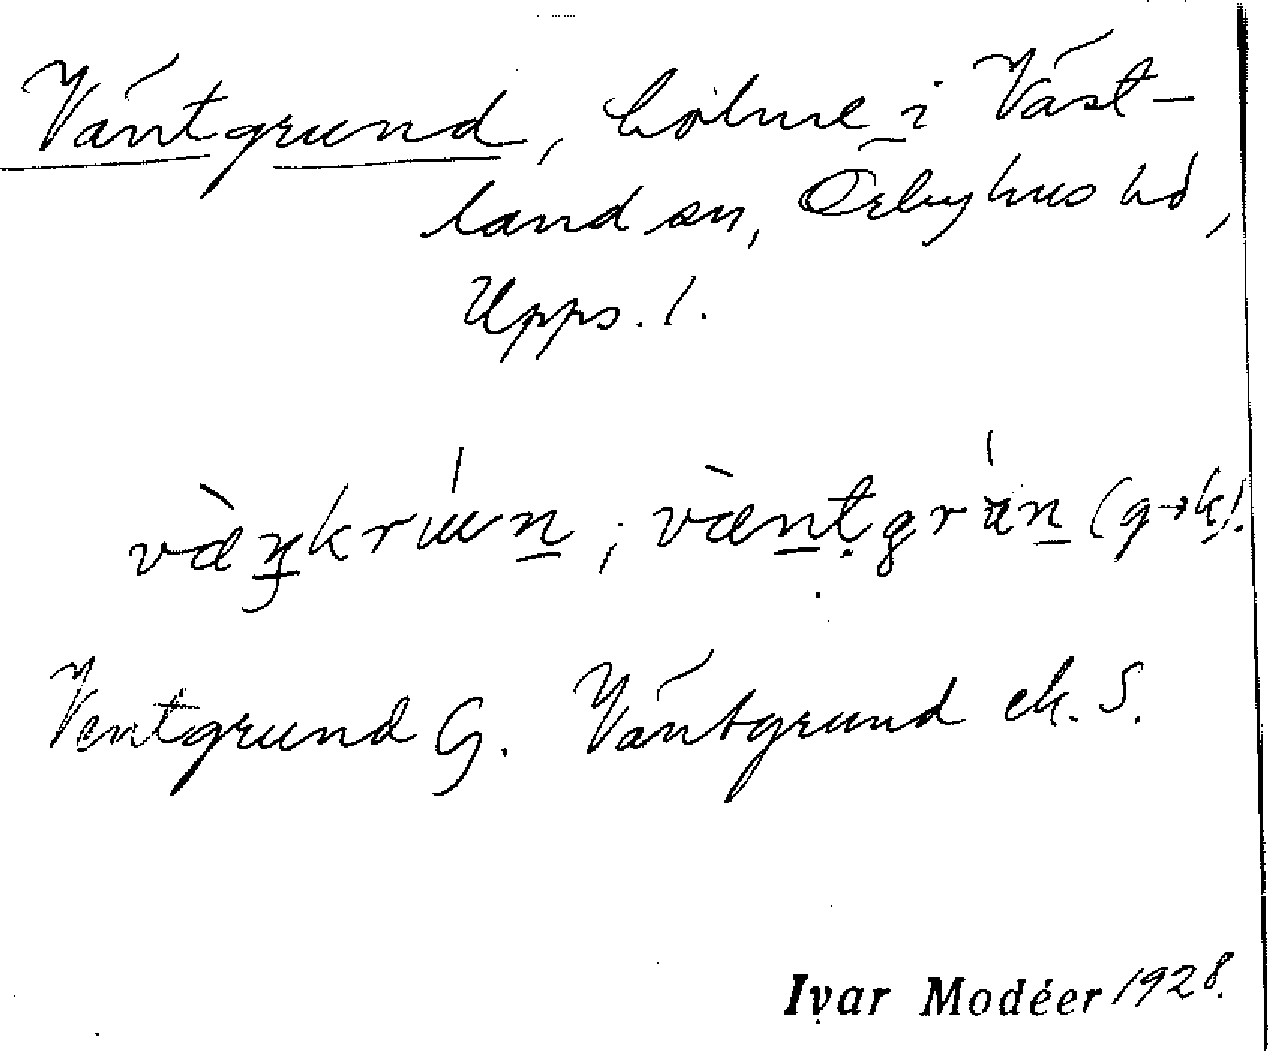 Väntgrund, holme i Väst-
land sn, Örbyhus hd,
Upps. l.
væ̀ŋkrún; væ̀ntgrún (g→k)!
Ventgrund G. Väntgrund ek. S.
Ivar Modéer 1928.